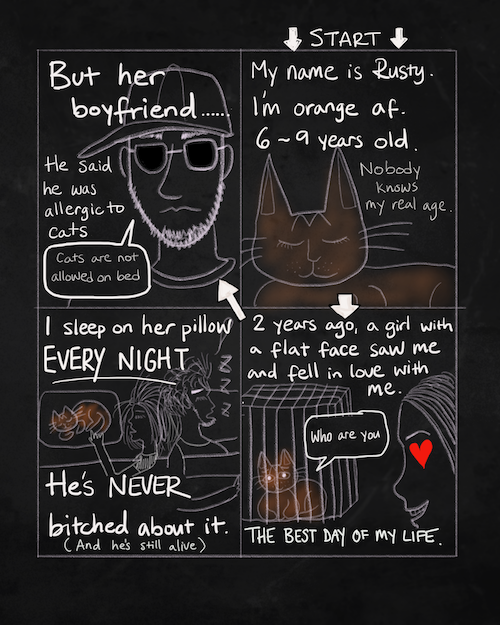 START
My name is Rusty.
I'm orange af.
6~9 years old.
Nobody
knows
my real age.
2 years ago, a girl with
a flat face saw me
and fell in love with
me.
Who are you
THE BEST DAY OF MY LIFE.
But her
boyfriend......
He said
he was
allergic to
cats
Cats are not
allowed on bed
I sleep on her pillow
EVERY NIGHT
Z
Z
Z
Z
He's NEVER
bitched about it.
(And he's still alive)